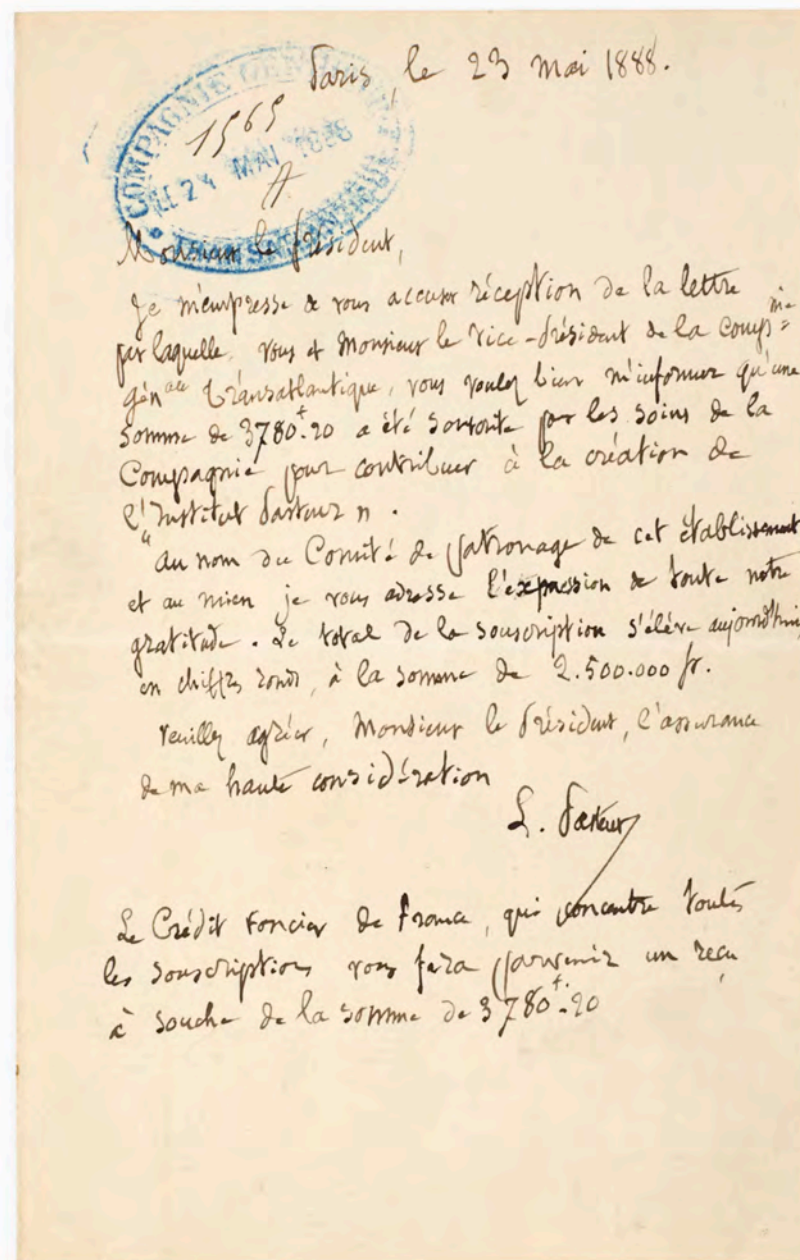 Paris, le 23 mai 1888.
COMPAGNIE
1565
LE 24 MAI 1888
A
Monsieur le Président,
Je m'empresse de vous accuser réception de la lettre
par laquelle, vous et Monsieur le Vice-Président de la Compnie
génale transatlantique, vous voulez bien m'informer qu'une
somme de 3780f.20 a été souscrite par les soins de la
Compagnie pour contribuer à la création de
l'"Institut Pasteur".
Au nom du Comité de patronage de cet établissement
et au mien je vous adresse l'expression de toute notre
gratitude. Le total de la souscription s'élève aujourd'hui,
en chiffres ronds, à la somme de 2.500.000 fr.
Veuillez agréer, Monsieur le Président, l'assurance
de ma haute considération
L. Pasteur
Le Crédit foncier de France, qui concentre toutes
les souscriptions vous fera parvenir un reçu
à souche de la somme de 3780f.20